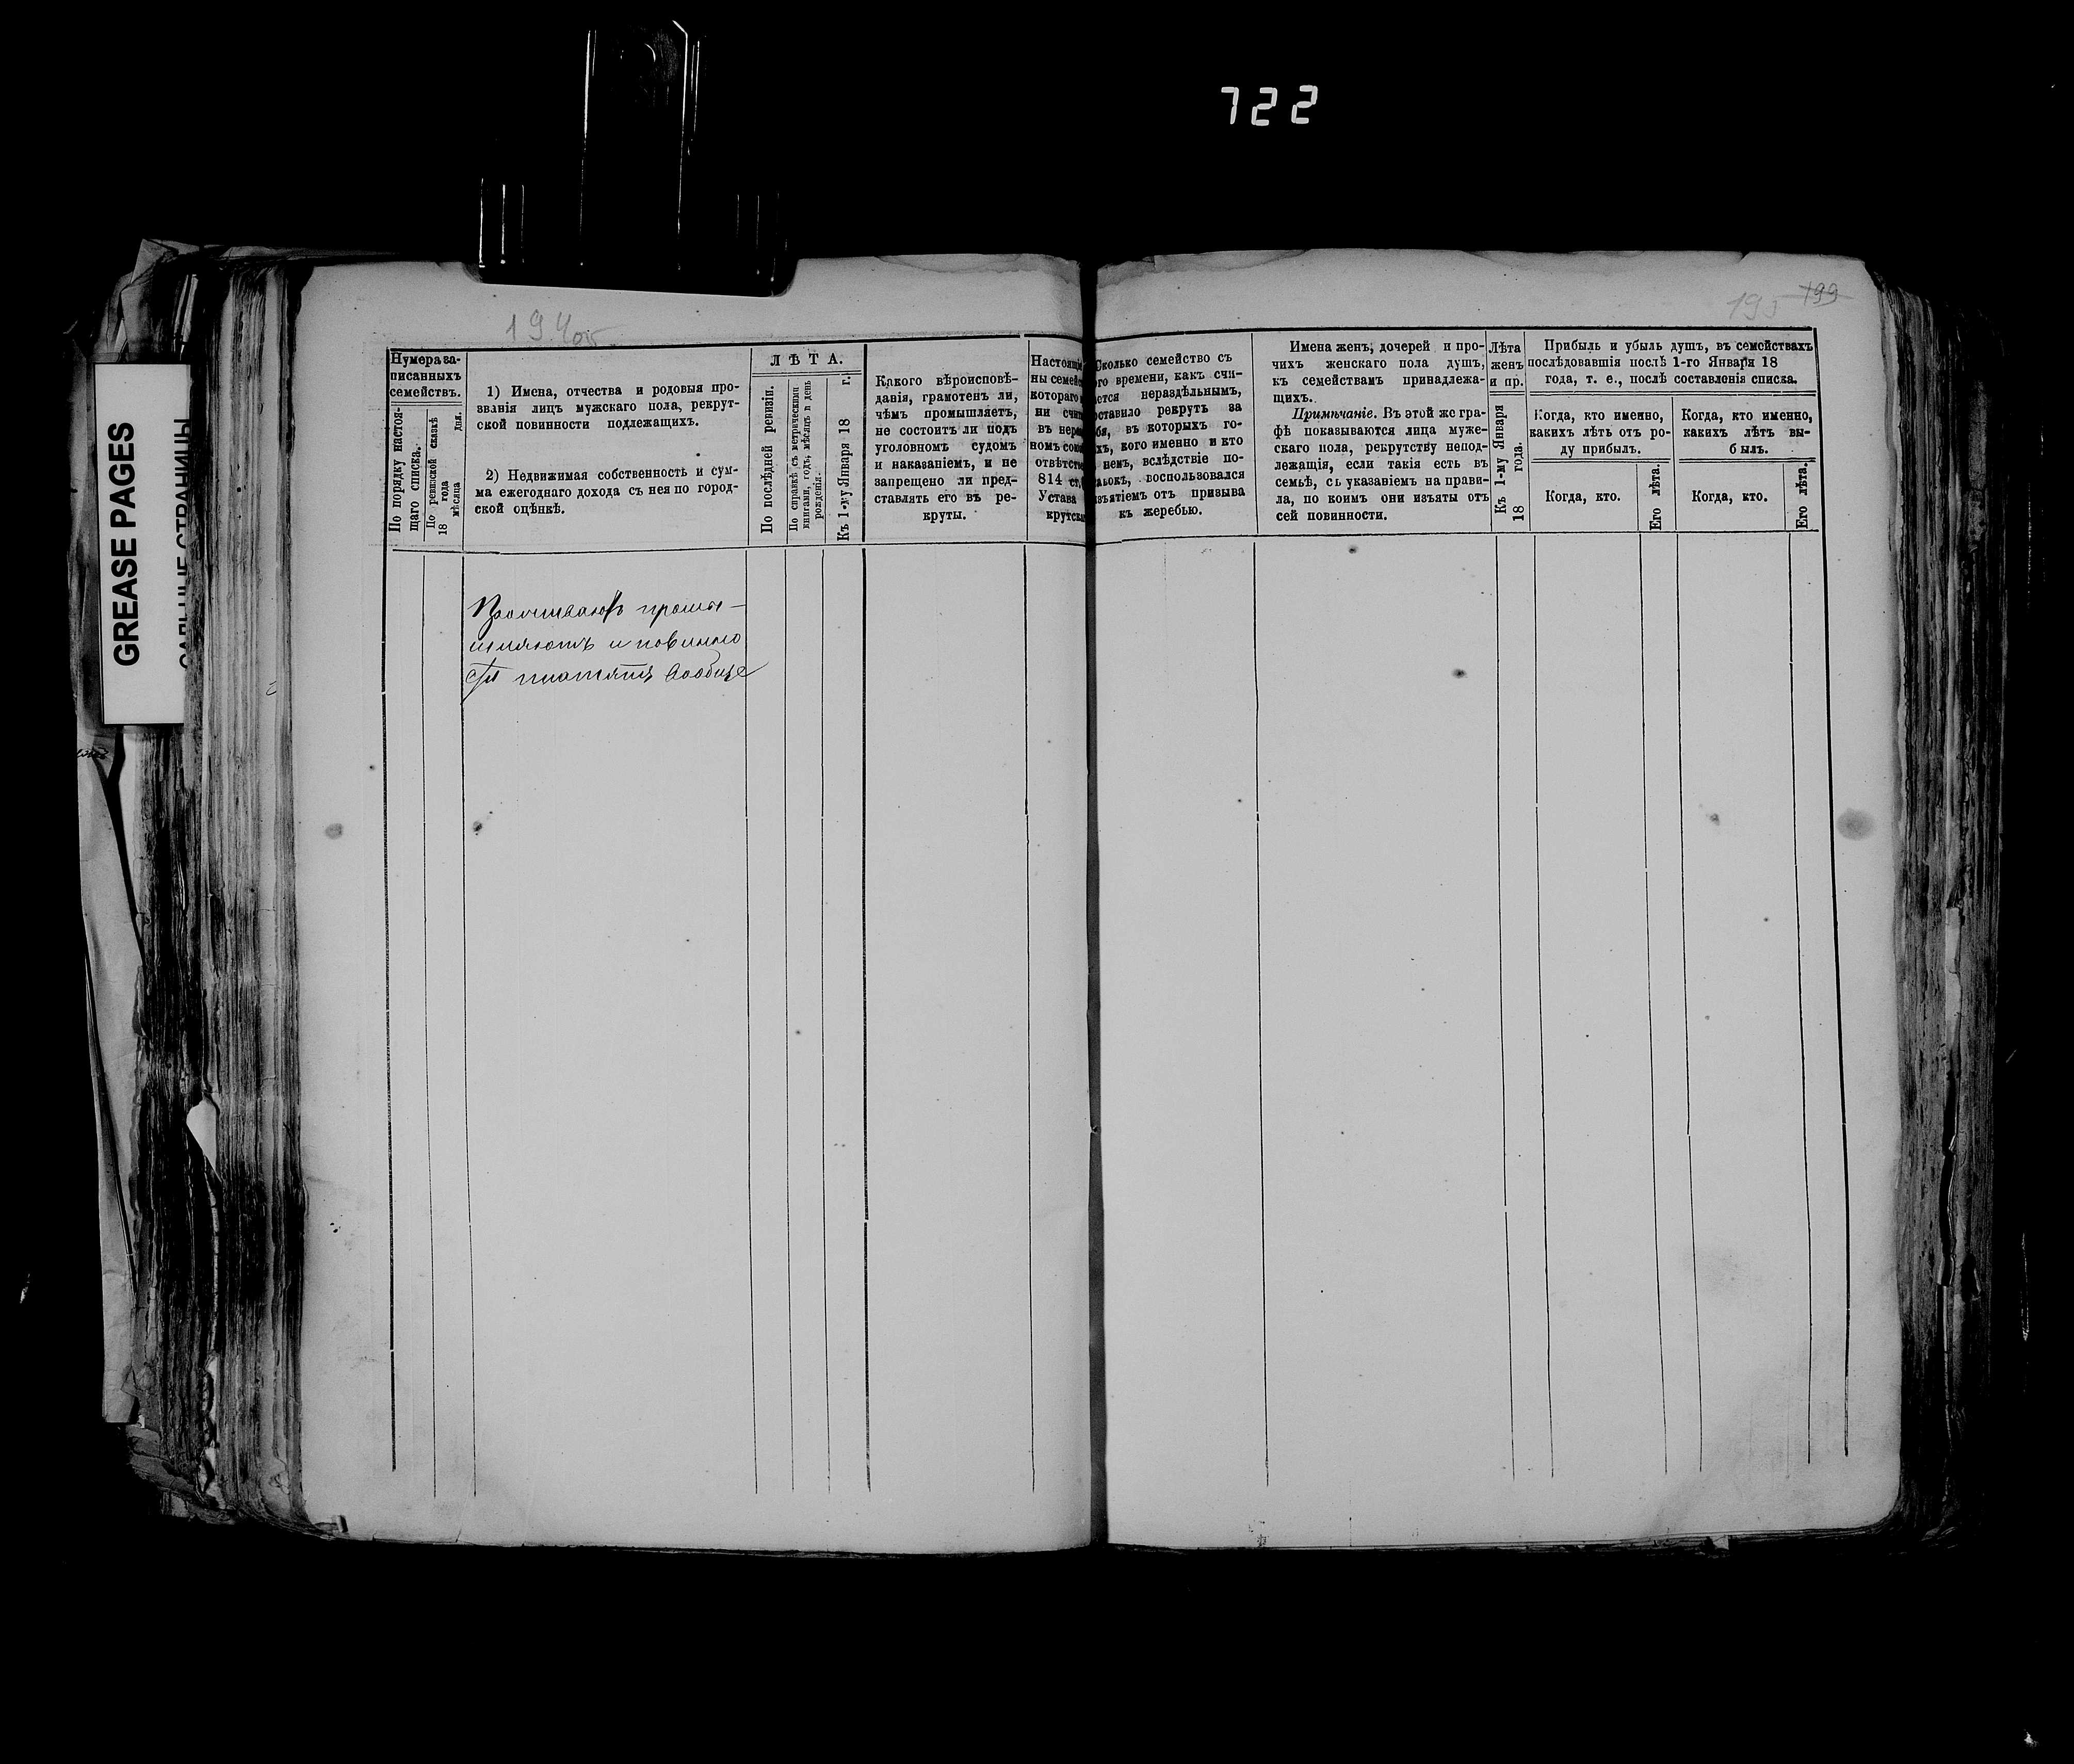 722
GREASE PAGES
САЛЬНЫЕ СТРАНИЦЫ
194об.
195 199
Нумера за-
писанныхъ
семействъ.
По порядку настоя-
щаго списка.
По ревизской сказкѣ
18 года
мѣсяца дня.
1) Имена, отчества и родовыя про-
званія лицъ мужскаго пола, рекрут-
ской повинности подлежащихъ.
2) Недвижимая собственность и сум-
ма ежегоднаго дохода съ нея по город-
ской оцѣнкѣ.
ЛѢТА.
По послѣдней ревизіи.
По справкѣ съ метрическими
книгами, годъ, мѣсяцъ и день
рожденія.
Къ 1-му Января 18 г.
Какого вѣроисповѣ-
данія, грамотенъ ли,
чѣмъ промышляетъ,
не состоитъ ли подъ
уголовномъ судомъ
и наказаніемъ, и не
запрещено ли пред-
ставлять его въ ре-
круты.
Настоящі
ны семей
котораго
ни счи
въ нер
номъ сом
отвѣтст
814 ст.
Устава
крутск
Сколько семейство съ
го времени, какъ счи-
ается нераздѣльнымъ,
оставило рекрутъ за
бя, въ которыхъ го-
хъ, кого именно и кто
немъ, вслѣдствіе по-
воспользовался
изъятіемъ отъ призыва
къ жеребью.
Имена женъ, дочерей и про-
чихъ женскаго пола душъ,
къ семействамъ принадлежа-
щихъ.
Примѣчаніе. Въ этой же гра-
фѣ показываются лица муже-
скаго пола, рекрутству непод-
лежащія, если такія есть въ
семьѣ, съ указаніемъ на прави-
ла, по коимъ они изъяты отъ
сей повинности.
Лѣта
женъ
и пр.
Къ 1-му Января
18 года.
Прибыль и убыль душъ, въ семействахъ
послѣдовавшія послѣ 1-го Января 18
года, т. е., послѣ составленія списка.
Когда, кто именно,
какихъ лѣтъ отъ ро-
ду прибылъ.
Когда, кто.
Его лѣта.
Когда, кто именно,
какихъ лѣтъ вы-
былъ.
Когда, кто.
Его лѣта.
промы-
шляютъ и повинно
сти платятъ вообще